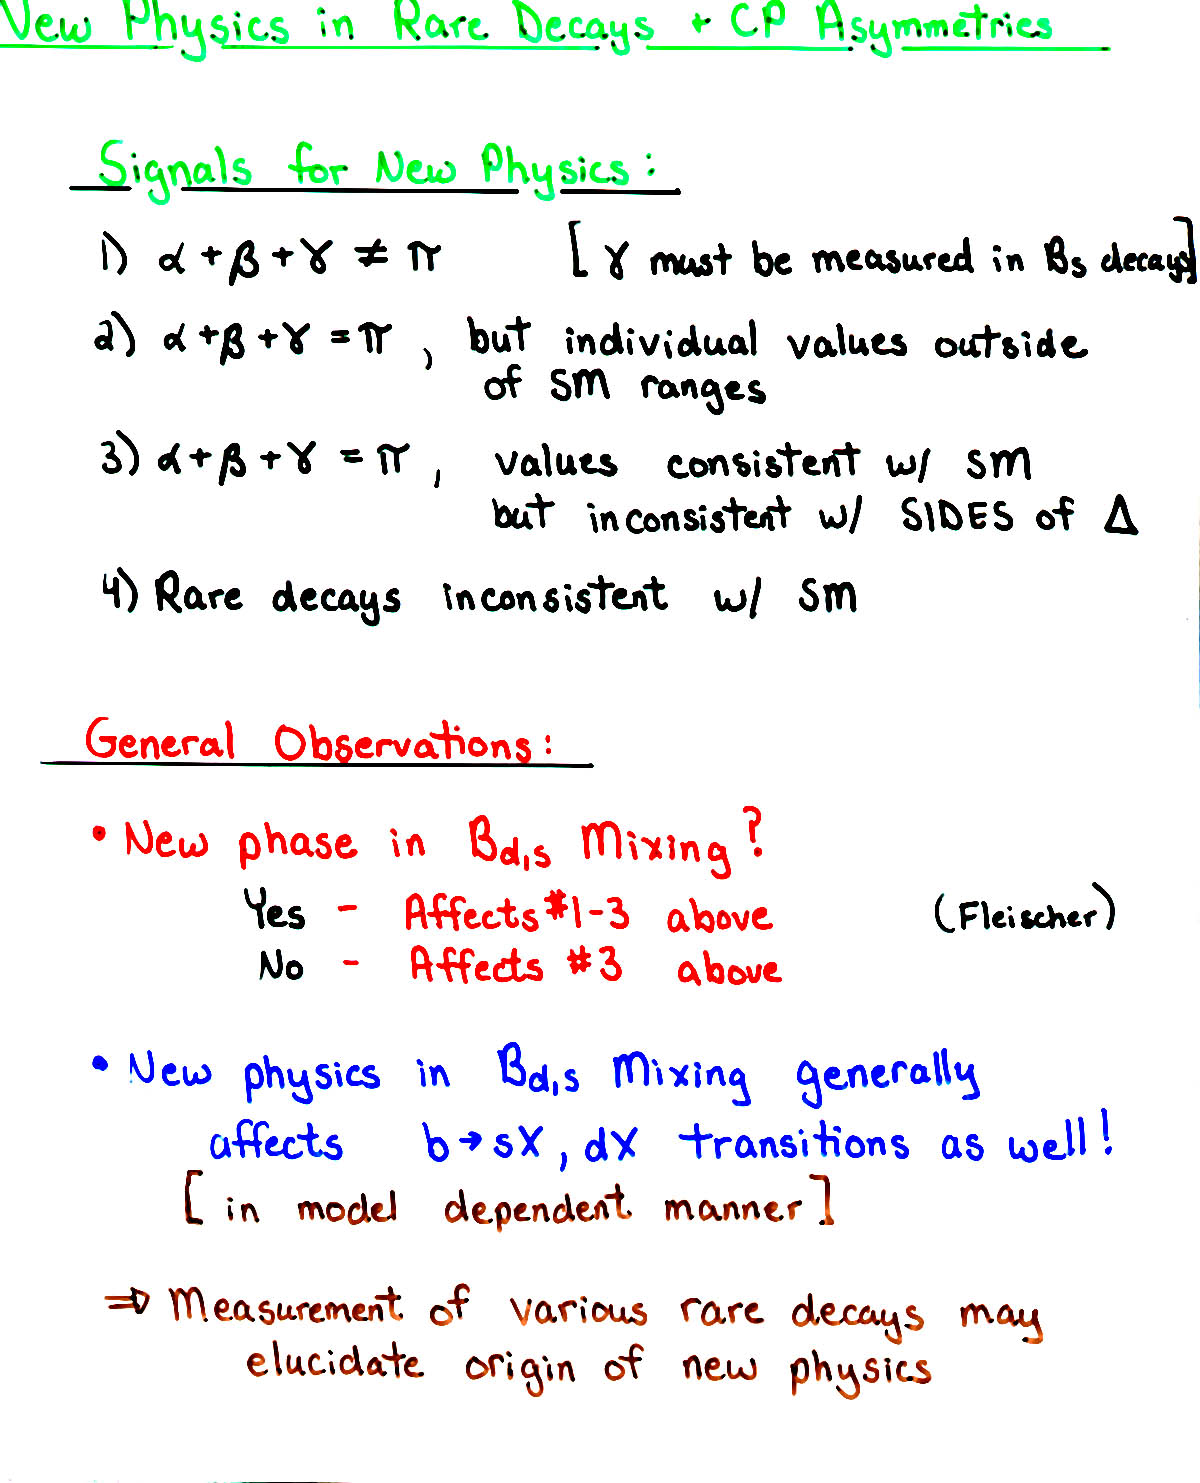 New Physics in Rare Decays + CP Asymmetries
Signals for New Physics:
1) α+β+γ ≠ π [γ must be measured in Bs decays]
2) α+β+γ = π, but individual values outside
of SM ranges
3) α+β+γ = π, values consistent w/ SM
but inconsistent w/ SIDES of Δ
4) Rare decays inconsistent w/ SM
General Observations:
• New phase in Bd,s Mixing?
Yes - Affects #1-3 above (Fleischer)
No - Affects #3 above
• New physics in Bd,s Mixing generally
affects b→sX, dX transitions as well!
[in model dependent manner]
⇒ Measurement of various rare decays may
elucidate origin of new physics